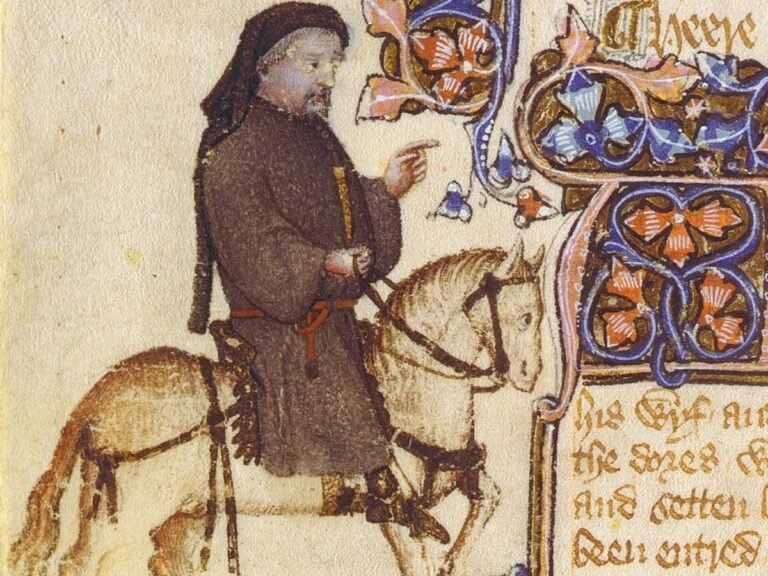 Heere
his wyf an
the dores w
and setten l
been entred